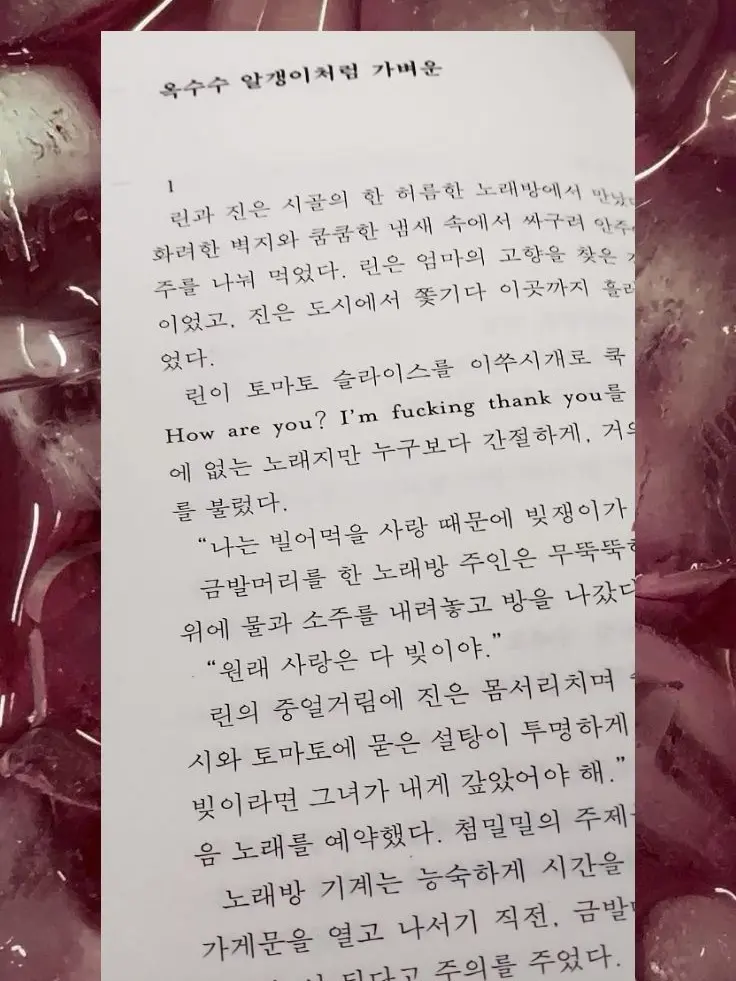 옥수수 알갱이처럼 가벼운
1
린과 진은 시골의 한 허름한 노래방에서 만났
화려한 벽지와 쿰쿰한 냄새 속에서 싸구려 안주
주를 나눠 먹었다. 린은 엄마의 고향을 찾은
이었고, 진은 도시에서 쫓기다 이곳까지 흘러
었다.
린이 토마토 슬라이스를 이쑤시개로 쿡
How are you? I'm fucking thank you를
에 없는 노래지만 누구보다 간절하게, 거의
를 불렀다.
“나는 빌어먹을 사랑 때문에 빚쟁이가
금발머리를 한 노래방 주인은 무뚝뚝하
위에 물과 소주를 내려놓고 방을 나갔다
“원래 사랑은 다 빚이야.”
린의 중얼거림에 진은 몸서리치며
시와 토마토에 묻은 설탕이 투명하게
빚이라면 그녀가 내게 갚았어야 해.”
음 노래를 예약했다. 첨밀밀의 주제
노래방 기계는 능숙하게 시간을
가게문을 열고 나서기 직전, 금발
된다고 주의를 주었다.